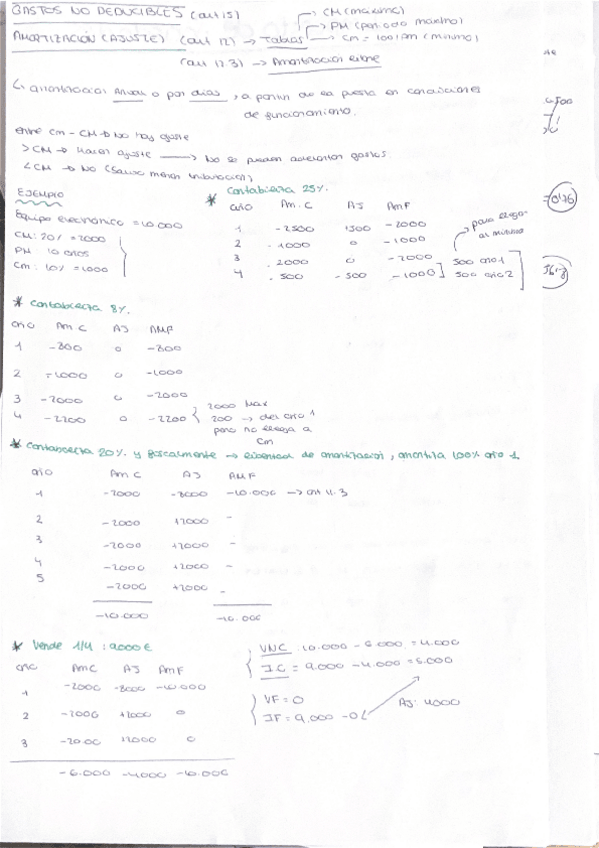 GASTOS NO DEDUCIBLES (art 15)
→ CM (máxima)
AMORTIZACIÓN (AJUSTE) (art 12) → Tablas → PM (periodo máximo)
→ Cm = 100/PM (mínimo)
(art 12.3) → Amortización libre
↳ amortización anual o por días, a partir de su puesta en condiciones
de funcionamiento.
entre Cm - CM → No hay ajuste
> CM → Hacer ajuste → No se pueden acelerar gastos
< CM → NO (salvo menor tributación)
EJEMPLO
Equipo electrónico = 10.000
CM: 20% = 2000
PM 10 años
Cm: 10% = 1000
* Contabiliza 25%
año Am.C AJ AmF
1 -2500 +500 -2000
2 -1000 0 -1000
3 -2000 0 -2000
4 -500 -500 -1000
para llegar al mínimo
500 año 1
500 año 2
* Contabiliza 8%
año AmC AJ AMF
1 -800 0 -800
2 -1000 0 -1000
3 -2000 0 -2000
4 -2200 0 -2200
2000 Max
200 → del año 1
pero no llega a
Cm
* Contabiliza 20% y fiscalmente → libertad de amortización, amortiza 100% año 1.
año AmC AJ AMF
1 -2000 -8000 -10.000 → art 12.3
2 -2000 +2000 -
3 -2000 +2000 -
4 -2000 +2000 -
5 -2000 +2000 -
-10.000 -10.000
* Vende 1/4 : 9.000 €
año AmC AJ AmF
1 -2000 -8000 -10.000
2 -2000 +2000 0
3 -2000 +2000 0
-6.000 -4000 -10.000
VNC: 10.000 - 6.000 = 4.000
IC = 9.000 - 4.000 = 5.000
VF = 0
IF = 9.000 - 0
AJ: 4000